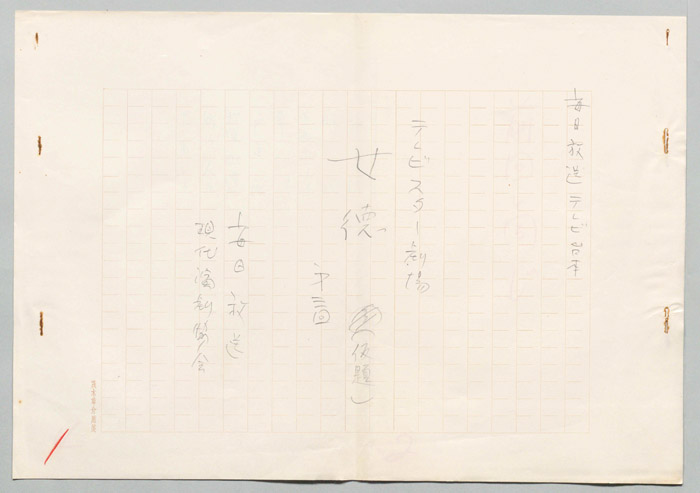 毎日放送テレビ台本
テレビスター劇場
女徳
(仮題)
第一回
毎日放送
現代演劇協会